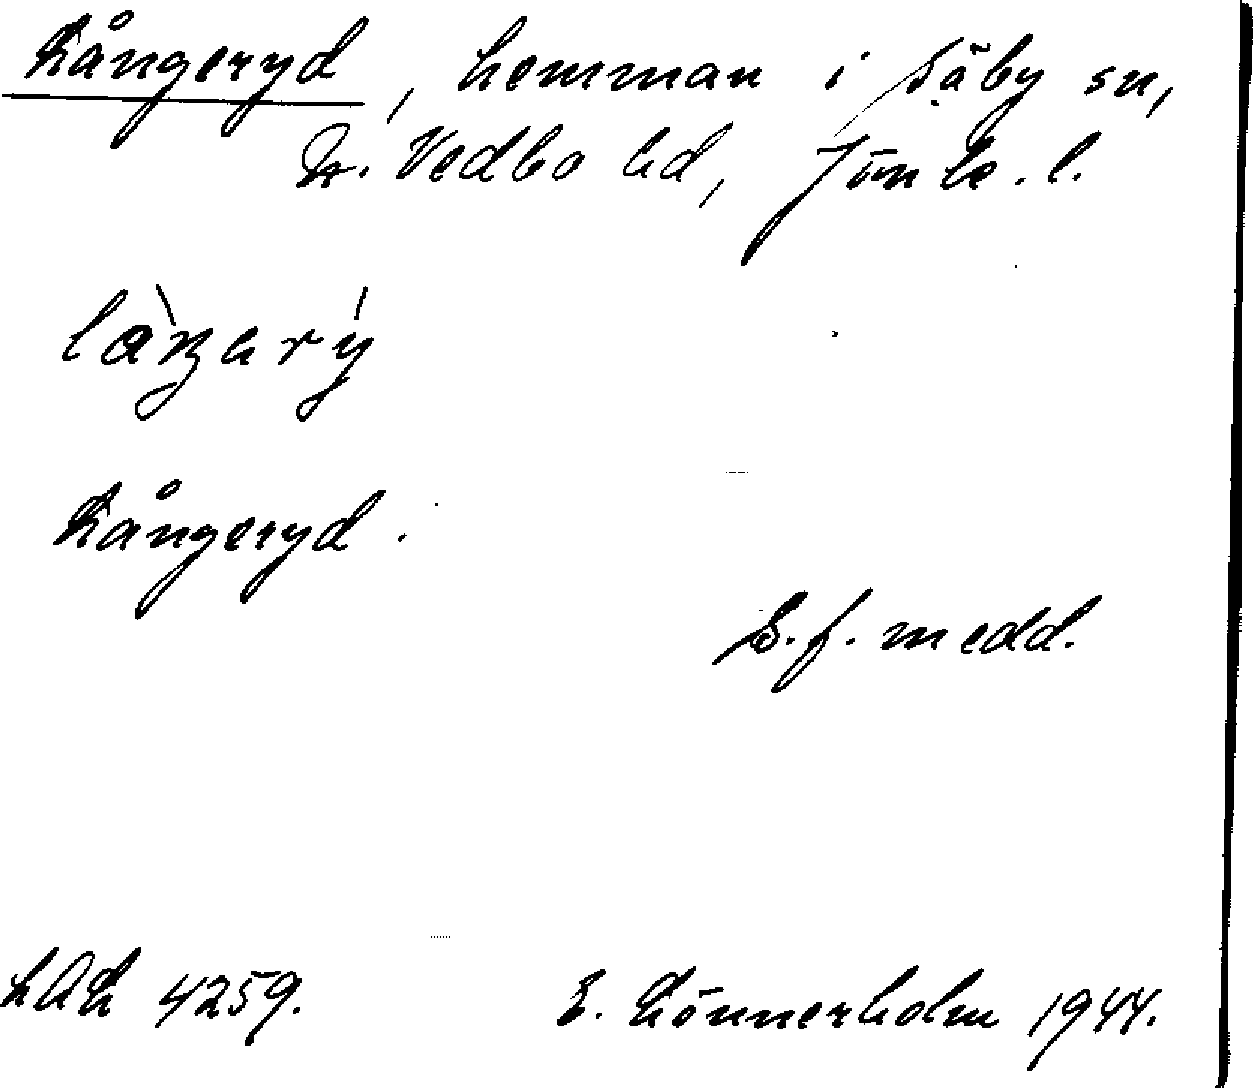 Långeryd, hemman i Säby sn,
N. Vedbo hd, Jönk. l.
làŋarý
Långeryd.
S.f. medd.
LAL 4259. E. Lönnerholm 1944.